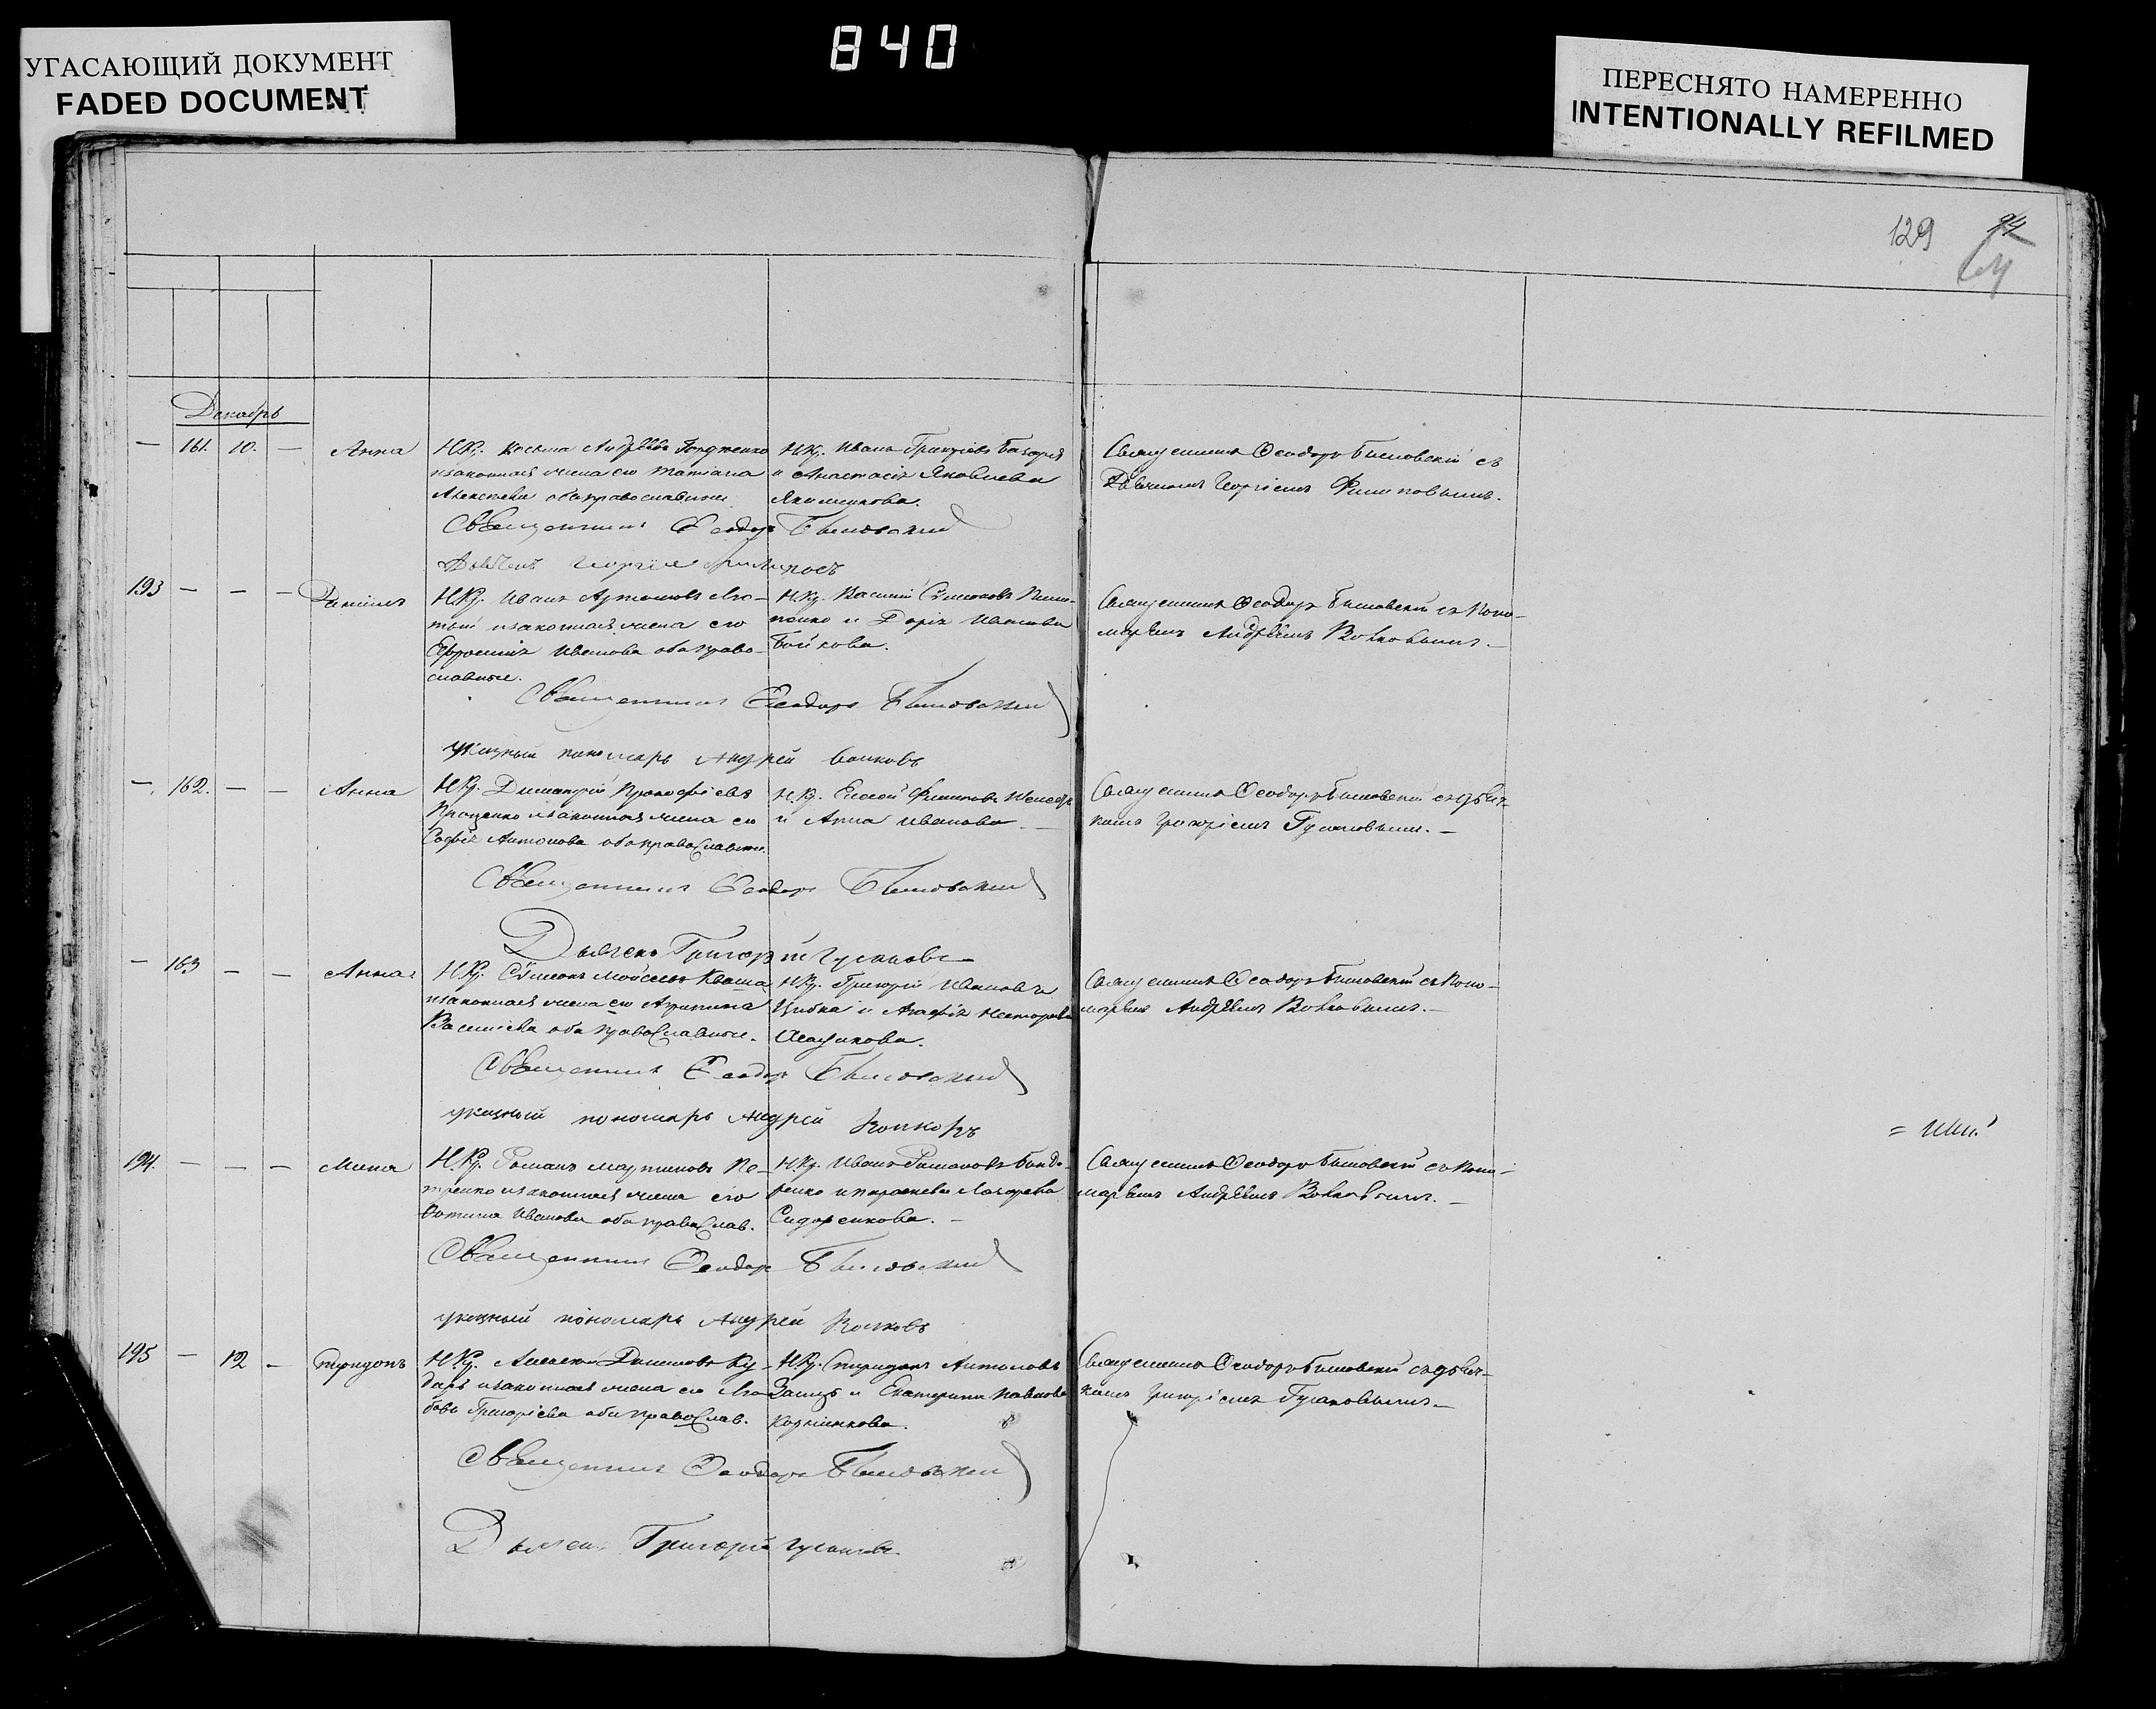 УГАСАЮЩИЙ ДОКУМЕНТ
FADED DOCUMENT
840
ПЕРЕСНЯТО НАМЕРЕННО
INTENTIONALLY REFILMED
129
Декабрь
— 161. 10. — Анна
Н.Кр. Косьма Андреевъ
и законная жена его Татіана
Алексеева оба православные
Н.Кр. Иванъ Григоріевъ
и Анастасія Яковлева
Якименкова.
Священникъ Ѳеодоръ съ
Дьячкомъ Георгіемъ Филиповымъ.
Священникъ Ѳеодоръ
Дьячекъ Георгій Филиповъ
193 — — — Даніилъ
Н.Кр. Иванъ Артемовъ Лю-
тый и законная жена его
Ефросинія Иванова оба право-
славные.
Н.Кр. Василій Сѵмеоновъ
и Дарія Иванова
Бойкова.
Священникъ Ѳеодоръ съ Поно-
маремъ Андреемъ Волковымъ.—
Священникъ Ѳеодоръ
указный пономарь Андрей Волковъ
— 162. — — Анна
Н.Кр. Димитрій Прокофіевъ
Проценко и законная жена его
Софія Антонова оба православные.
Н.Кр. Елисей Филиповъ
и Анна Иванова —
Священникъ Ѳеодоръ съ дьяч-
комъ Григоріемъ Гусаковымъ.—
Священникъ Ѳеодоръ
Дьячекъ Григорій Гусаковъ
— 163 — — Анна
Н.Кр. Сѵмеонъ Мойсеевъ Кваша
и законная жена его Агрипина
Василіева оба православные.
Н.Кр. Григорій Ивановъ
Цибка и Агафія Несторова
Священникъ Ѳеодоръ съ Поно-
маремъ Андреемъ Волковымъ.—
Священникъ Ѳеодоръ
указный пономарь Андрей Волковъ
194. — — — Мина
Н.Кр. Романъ Мартиновъ Пе-
тренко и законная жена его
Фотина Иванова оба православ.
Н.Кр. Иванъ Романовъ Бонда-
ренко и Параскева Лазарева
Сидоренкова.—
Священникъ Ѳеодоръ съ Поно-
маремъ Андреемъ Волковымъ.—
Священникъ Ѳеодоръ
указный пономарь Андрей Волковъ
195 — 12 — Спиридонъ
Н.Кр. Алексей Даниловъ Ку-
дарь и законная жена его Лю-
бовь Григоріева оба православ.
Н.Кр. Спиридонъ Антоновъ
Заицъ и Екатерина Павлова
Священникъ Ѳеодоръ съ дьяч-
комъ Григоріемъ Гусаковымъ.—
Священникъ Ѳеодоръ
Дьячекъ Григорій Гусаковъ